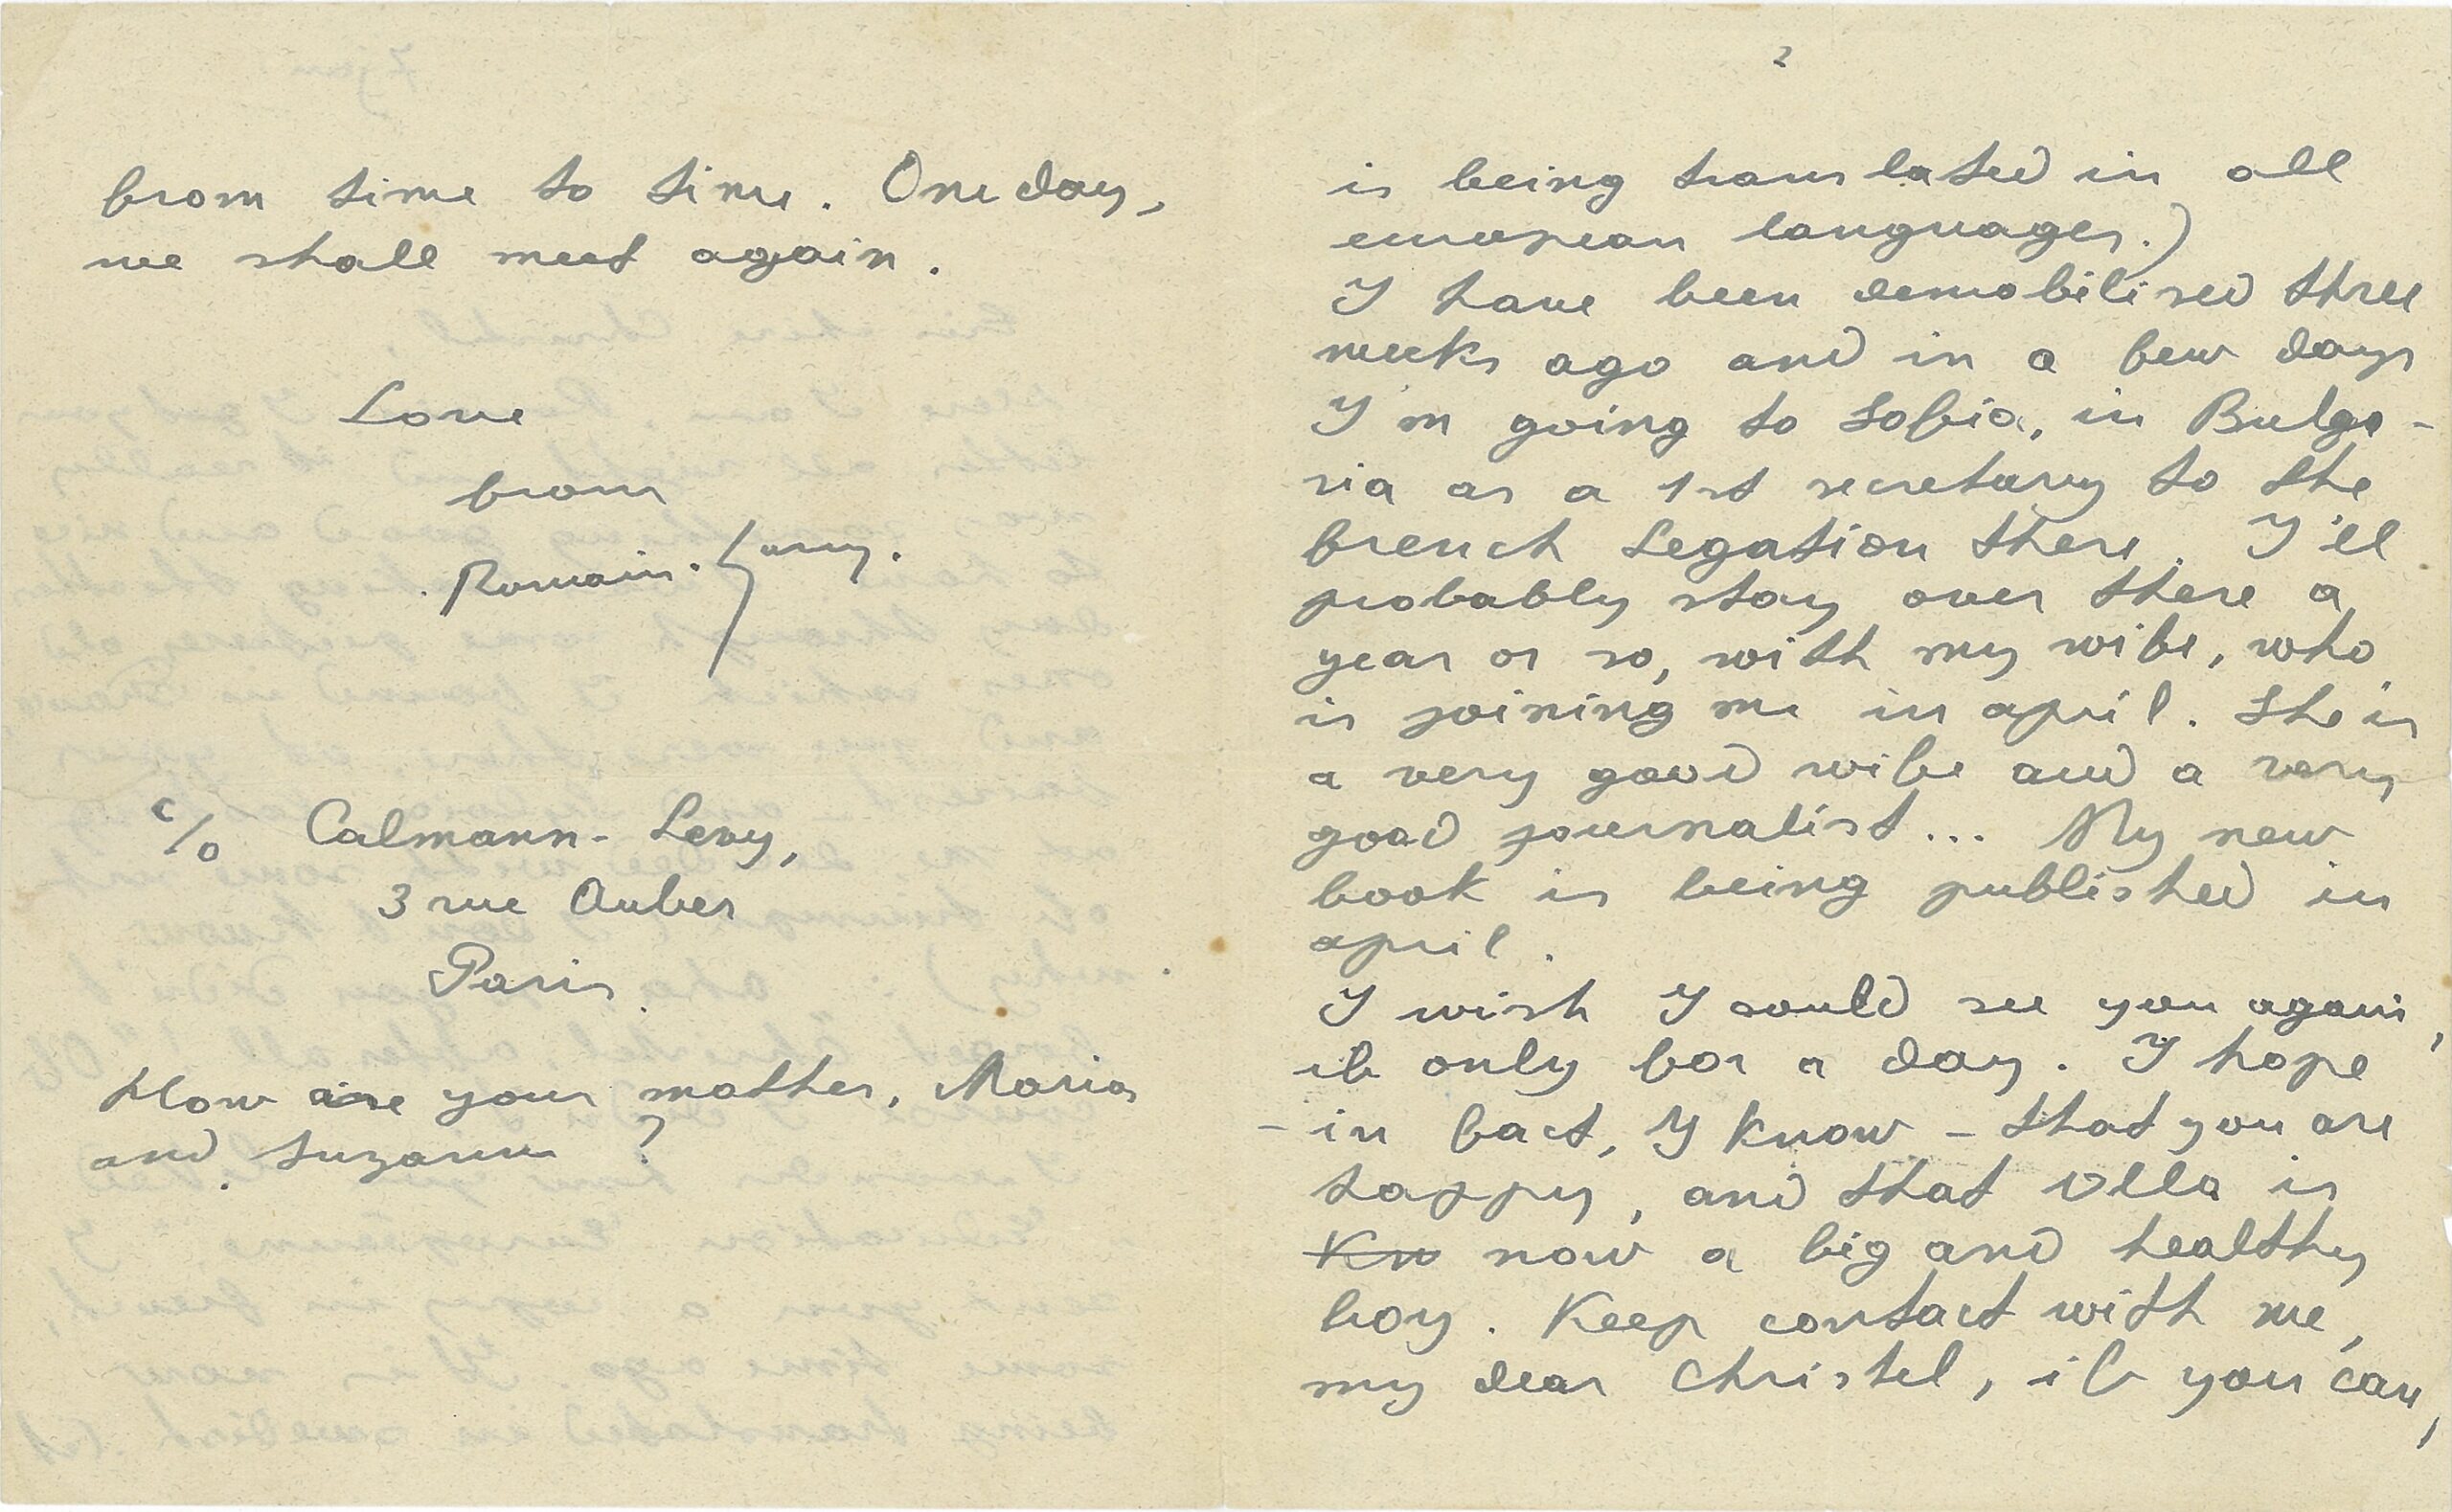 2
is being translated in all
european languages.)
I have been demobilised three
weeks ago and in a few days
I'm going to Sofia, in Bulga-
ria as a 1st secretary to the
french Legation there. I'll
probably stay over there a
year or so, with my wife, who
is joining me in april. She is
a very good wife and a very
good journalist... My new
book is being published in
april.
I wish I could see you again,
if only for a day. I hope
- in fact, I know - that you are
happy, and that Ulla is
Kn now a big and healthy
boy. Keep contact with me,
my dear Christel, if you can,
from time to time. One day,
we shall meet again.
Love
from
Romain. Gary.
c/o Calmann-Levy,
3 rue Auber
Paris.
How are your mother, Maria
and Suzanne ?